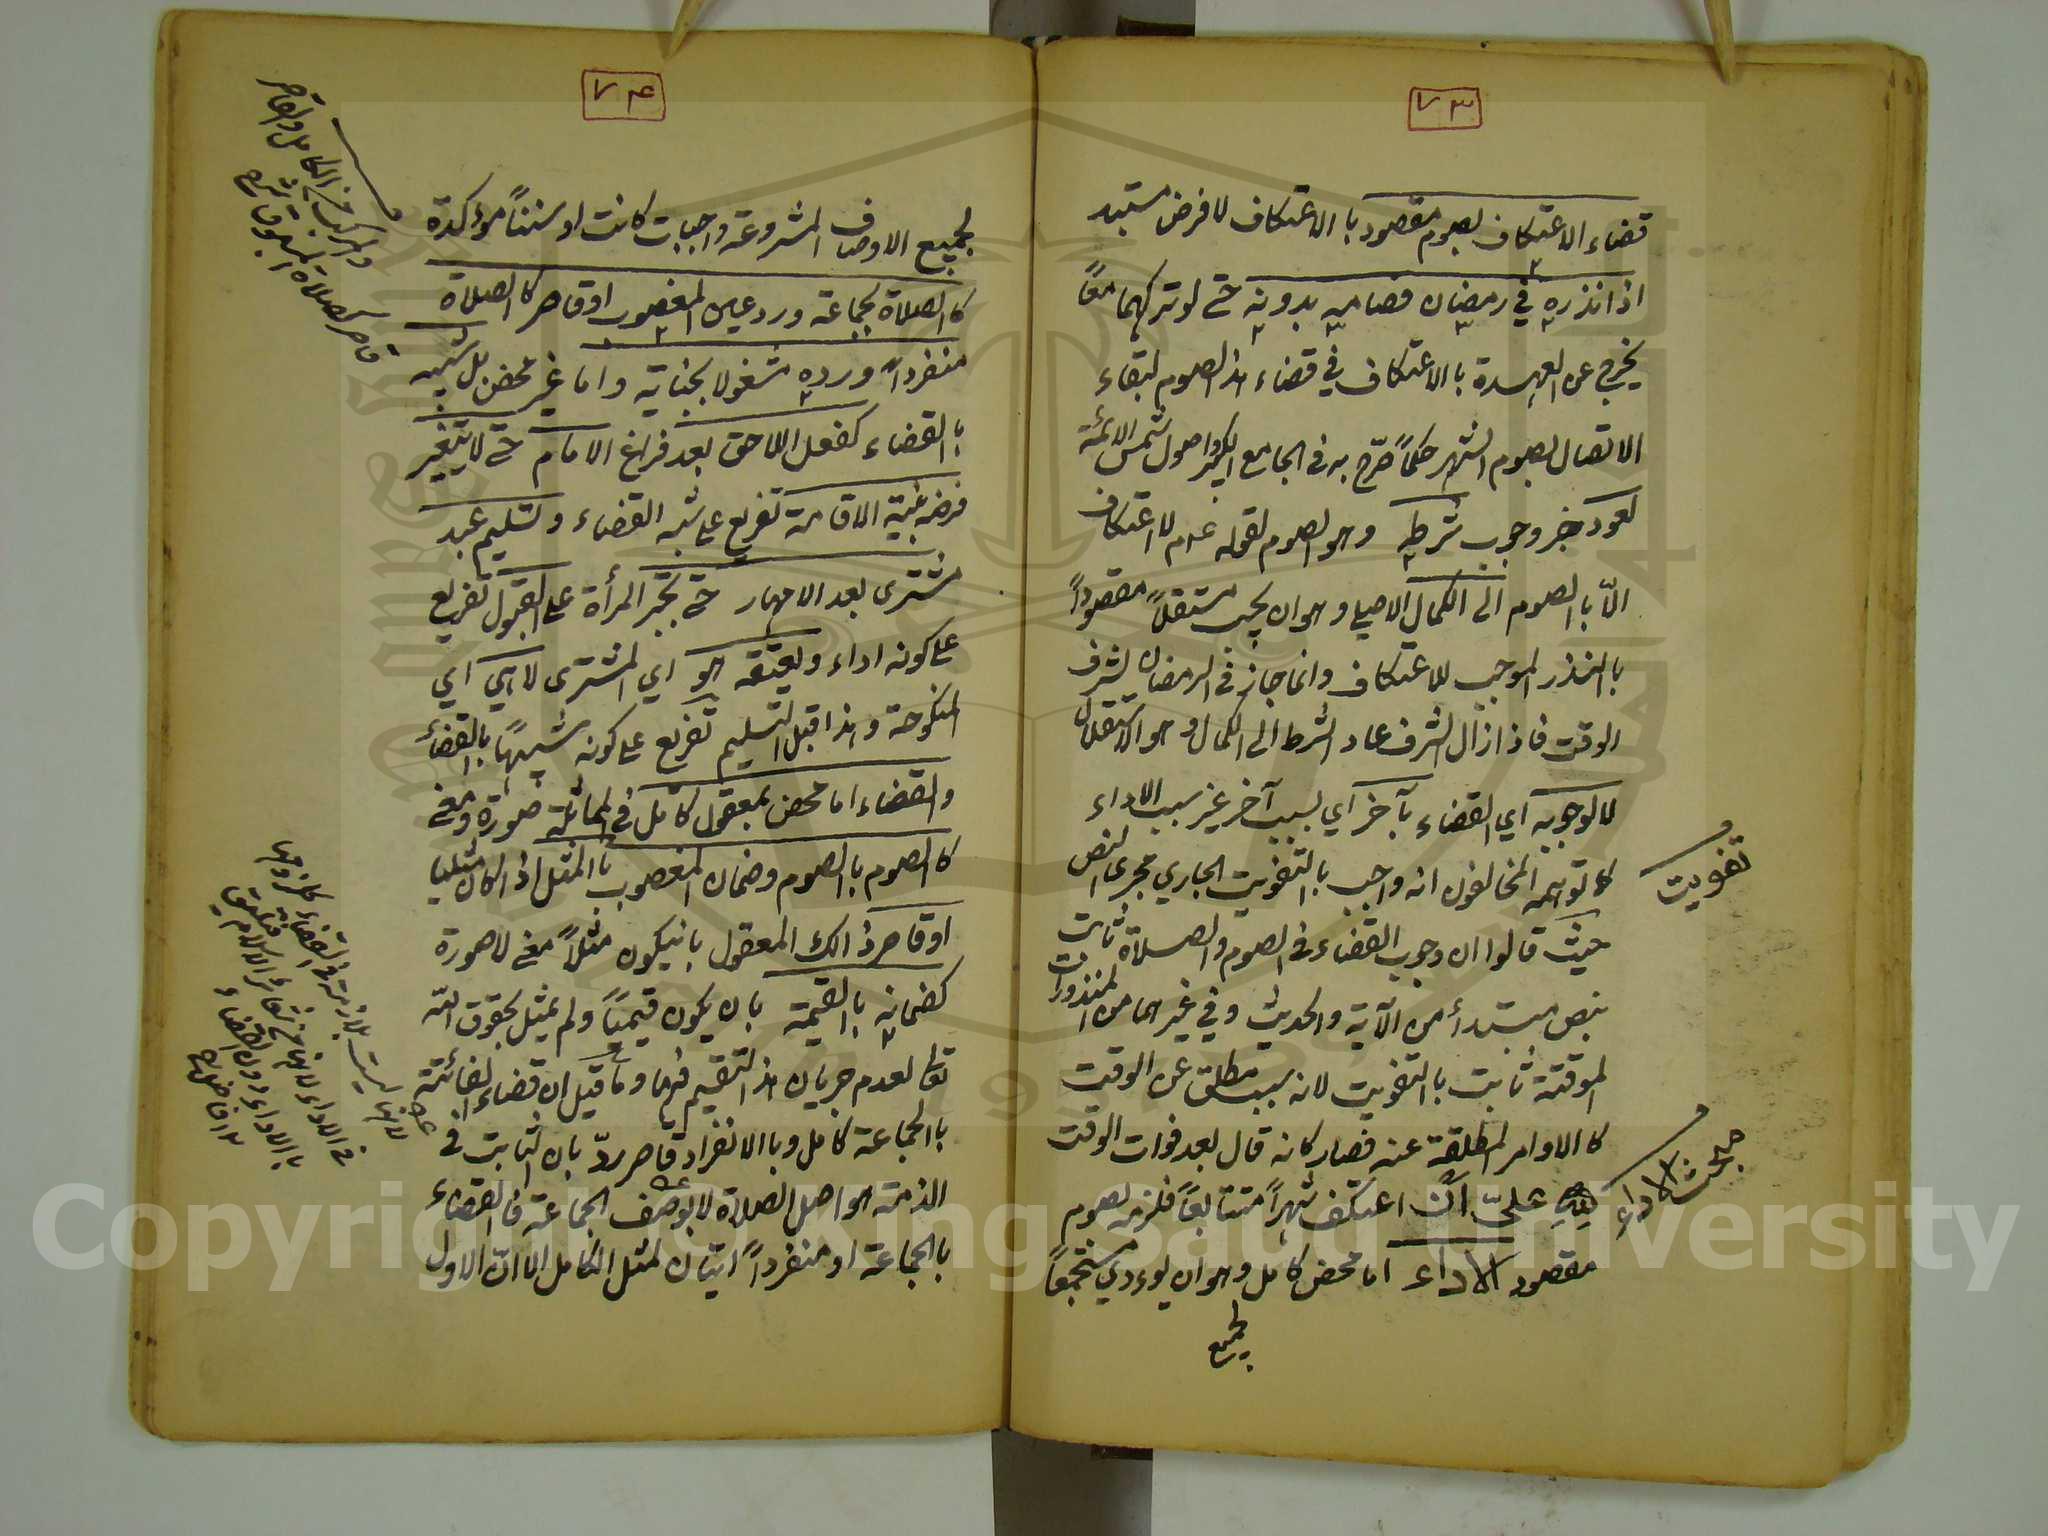 ٧٣
قضاء الاعتكاف بصوم مقصود بالاعتكاف لا فرض مبتد
اذا نذره في رمضان فصامه بدونه حتى لو تركهما معاً
يخرج عن العهدة بالاعتكاف في قضاء هذا الصوم لبقاء
الاتصال بصوم الشهر حكماً صرّح به في الجامع الكبير واصول شمس الائمة
لعود خبر وجوب شرطه وهو الصوم لقوله عم لا اعتكاف
الّا بالصوم الى الكمال الاصلي وهو ان يجب مستقلاً مقصوداً
بالنذر الموجب للاعتكاف وانما جاز في الرمضان لشرف
الوقت فاذا زال الشرف عاد الشرط الى الكمال وهو الاستقلال
لا لوجوبه اي القضاء بآخر اي بسبب آخر غير سبب الاداء
كما توهمه المخالفون انه واجب بالتفويت الجاري مجرى النص
حيث قالوا ان وجوب القضاء في الصوم والصلاة ثابت
بنص مبتدأ من الآية والحديث وفي غيرهما من المنذورات
الموقتة ثابت بالتفويت لانه سبب مطلق عن الوقت
كالاوامر المطلقة عنه فصار كانه قال بعد فوات الوقت
عليّ ان اعتكف شهراً متتابعاً فلزمه بصوم
مقصود الاداء اما محض كامل وهو ان يؤدي مستجمعاً
لجميع
تفويت
مبحث الاداء
٧۴
لجميع الاوصاف المشروعة واجبات كانت او سنناً مؤكدة
كالصلاة بجماعة ورد عين المغصوب او قاصر كالصلاة
منفرداً ورده مشغولا بجناية واما غير محض بل شبيه
بالقضاء كفعل اللاحق بعد فراغ الامام حتى لا يتغير
فرضه بنية الاقامة تفريع على شبه القضاء وتسليم عبد
مشترى بعد الامهار حتى تجبر المرأة على القبول تفريع
على كونه اداء ويعتقه هو اي المشترى لا هي اي
المنكوحة وهذا قبل التسليم تفريع على كونه شبيهاً بالقضاء
والقضاء اما محض بمعقول كامل في المماثلة صورة ومعنى
كالصوم بالصوم وضمان المغصوب بالمثل اذا كان مثليا
او قاصر ذلك المعقول بان يكون مثلاً معنى لا صورة
كضمانه بالقيمة بان يكون قيمياً ولم يمثل بحقوق الله
تعالى لعدم جريان هذا التقسيم فيها وما قيل ان قضاء الفائتة
بالجماعة كامل وبالانفراد قاصر ردّ بان الثابت في
الذمة هو اصل الصلاة لا بوصف الجماعة فالقضاء
بالجماعة او منفرداً اتيان لمثل الكامل الا ان الاول
والمركب من الكامل والقاصر
قاصر كصلاة المسبوق